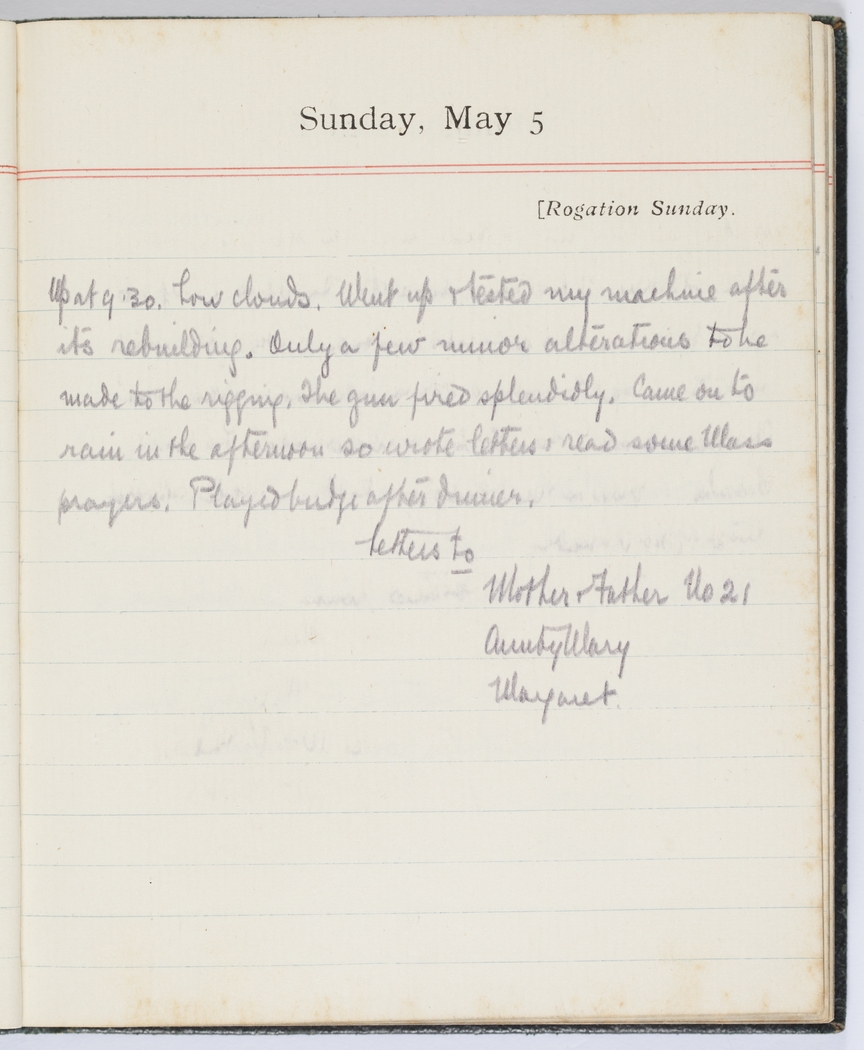 Sunday, May 5
[Rogation Sunday.
Up at 9.30. Low clouds. Went up & tested my machine after
its rebuilding. Only a few minor alterations to be
made to the rigging. The gun fired splendidly. Came on to
rain in the afternoon so wrote letters & read some Mass
prayers. Played bridge after dinner.
Letters to
Mother & Father No 21
Aunty Mary
Margaret.